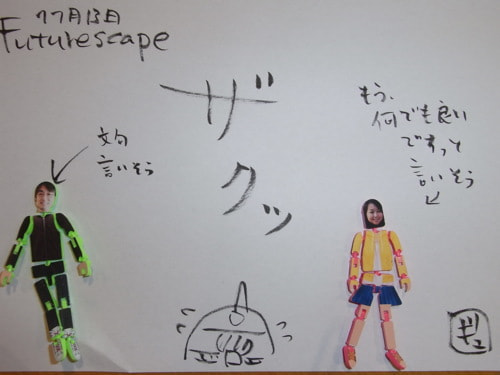 11月13日
Futurescape
ザクッ
文句
言いそう
もう、
何でも良い
ですっと
言いそう
ギュ